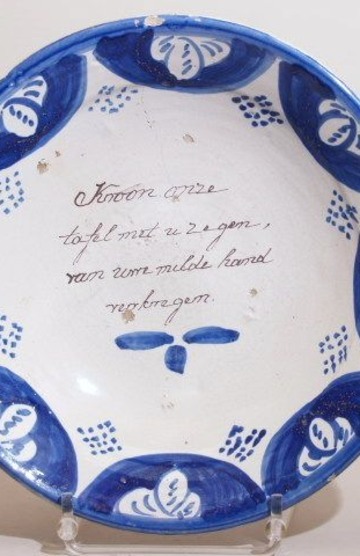 Kroon onze
tafel met u zegen,
van uwe milde hand
verkregen.